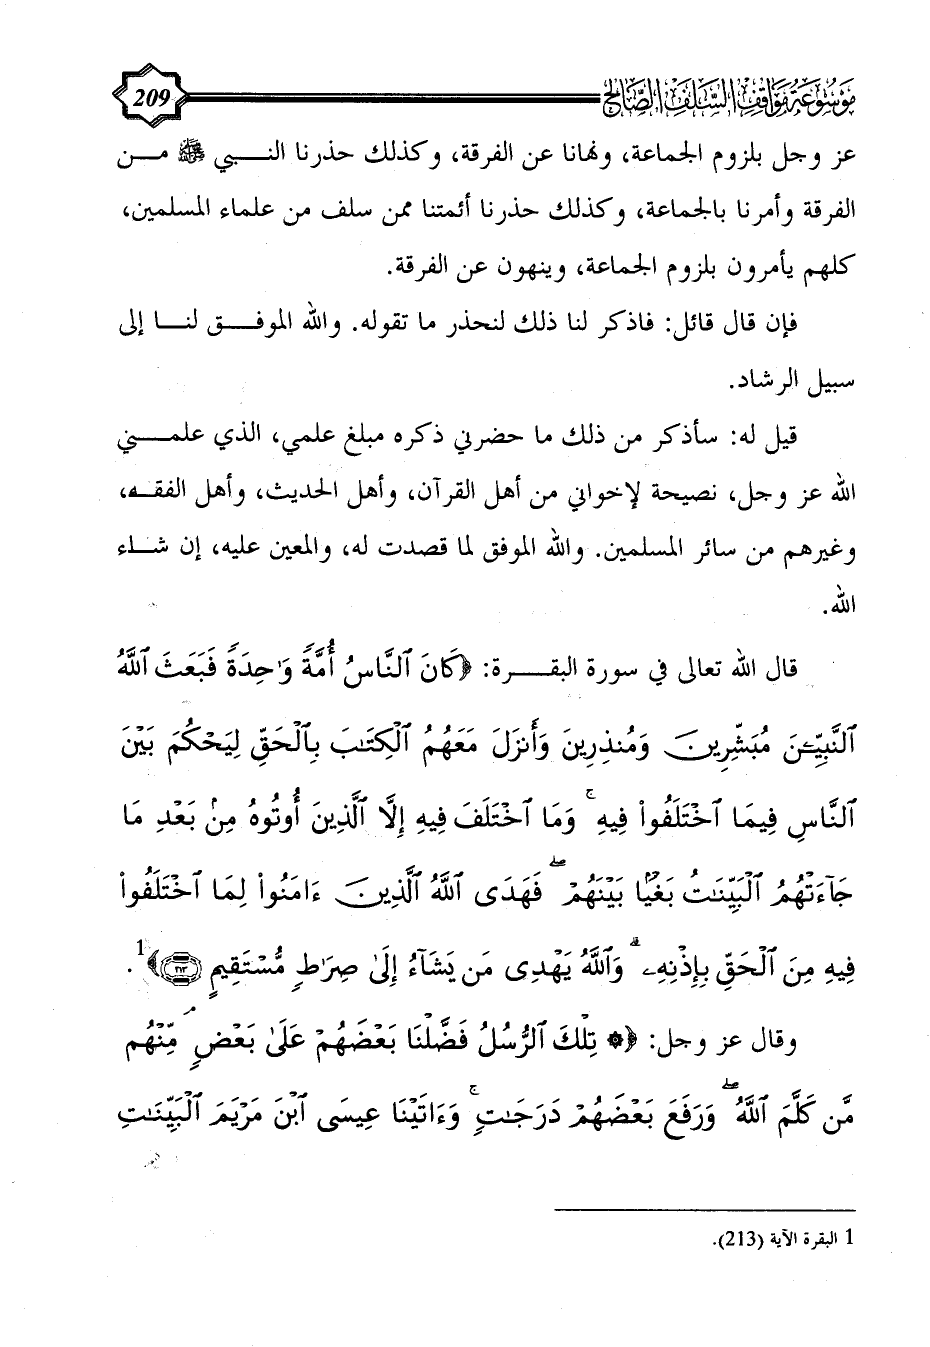 موسوعة مواقف السلف الصالح
209
عز وجل بلزوم الجماعة، ونهانا عن الفرقة، وكذلك حذرنا النبي ﷺ من
الفرقة وأمرنا بالجماعة، وكذلك حذرنا أئمتنا ممن سلف من علماء المسلمين،
كلهم يأمرون بلزوم الجماعة، وينهون عن الفرقة.
فإن قال قائل: فاذكر لنا ذلك لنحذر ما تقوله. والله الموفق لنا إلى
سبيل الرشاد.
قيل له: سأذكر من ذلك ما حضرني ذكره مبلغ علمي، الذي علمني
الله عز وجل، نصيحة لإخواني من أهل القرآن، وأهل الحديث، وأهل الفقه،
وغيرهم من سائر المسلمين. والله الموفق لما قصدت له، والمعين عليه، إن شاء
الله.
قال الله تعالى في سورة البقرة: ﴿كَانَ ٱلنَّاسُ أُمَّةً وَٰحِدَةً فَبَعَثَ ٱللَّهُ
ٱلنَّبِيِّـۧنَ مُبَشِّرِينَ وَمُنذِرِينَ وَأَنزَلَ مَعَهُمُ ٱلْكِتَٰبَ بِٱلْحَقِّ لِيَحْكُمَ بَيْنَ
ٱلنَّاسِ فِيمَا ٱخْتَلَفُوا۟ فِيهِ ۚ وَمَا ٱخْتَلَفَ فِيهِ إِلَّا ٱلَّذِينَ أُوتُوهُ مِنۢ بَعْدِ مَا
جَآءَتْهُمُ ٱلْبَيِّنَٰتُ بَغْيًۢا بَيْنَهُمْ ۖ فَهَدَى ٱللَّهُ ٱلَّذِينَ ءَامَنُوا۟ لِمَا ٱخْتَلَفُوا۟
فِيهِ مِنَ ٱلْحَقِّ بِإِذْنِهِۦ ۗ وَٱللَّهُ يَهْدِى مَن يَشَآءُ إِلَىٰ صِرَٰطٍ مُّسْتَقِيمٍ ٢١٣﴾1.
وقال عز وجل: ﴿۞ تِلْكَ ٱلرُّسُلُ فَضَّلْنَا بَعْضَهُمْ عَلَىٰ بَعْضٍ ۘ مِّنْهُم
مَّن كَلَّمَ ٱللَّهُ ۖ وَرَفَعَ بَعْضَهُمْ دَرَجَٰتٍ ۚ وَءَاتَيْنَا عِيسَى ٱبْنَ مَرْيَمَ ٱلْبَيِّنَٰتِ
1 البقرة الآية (213).